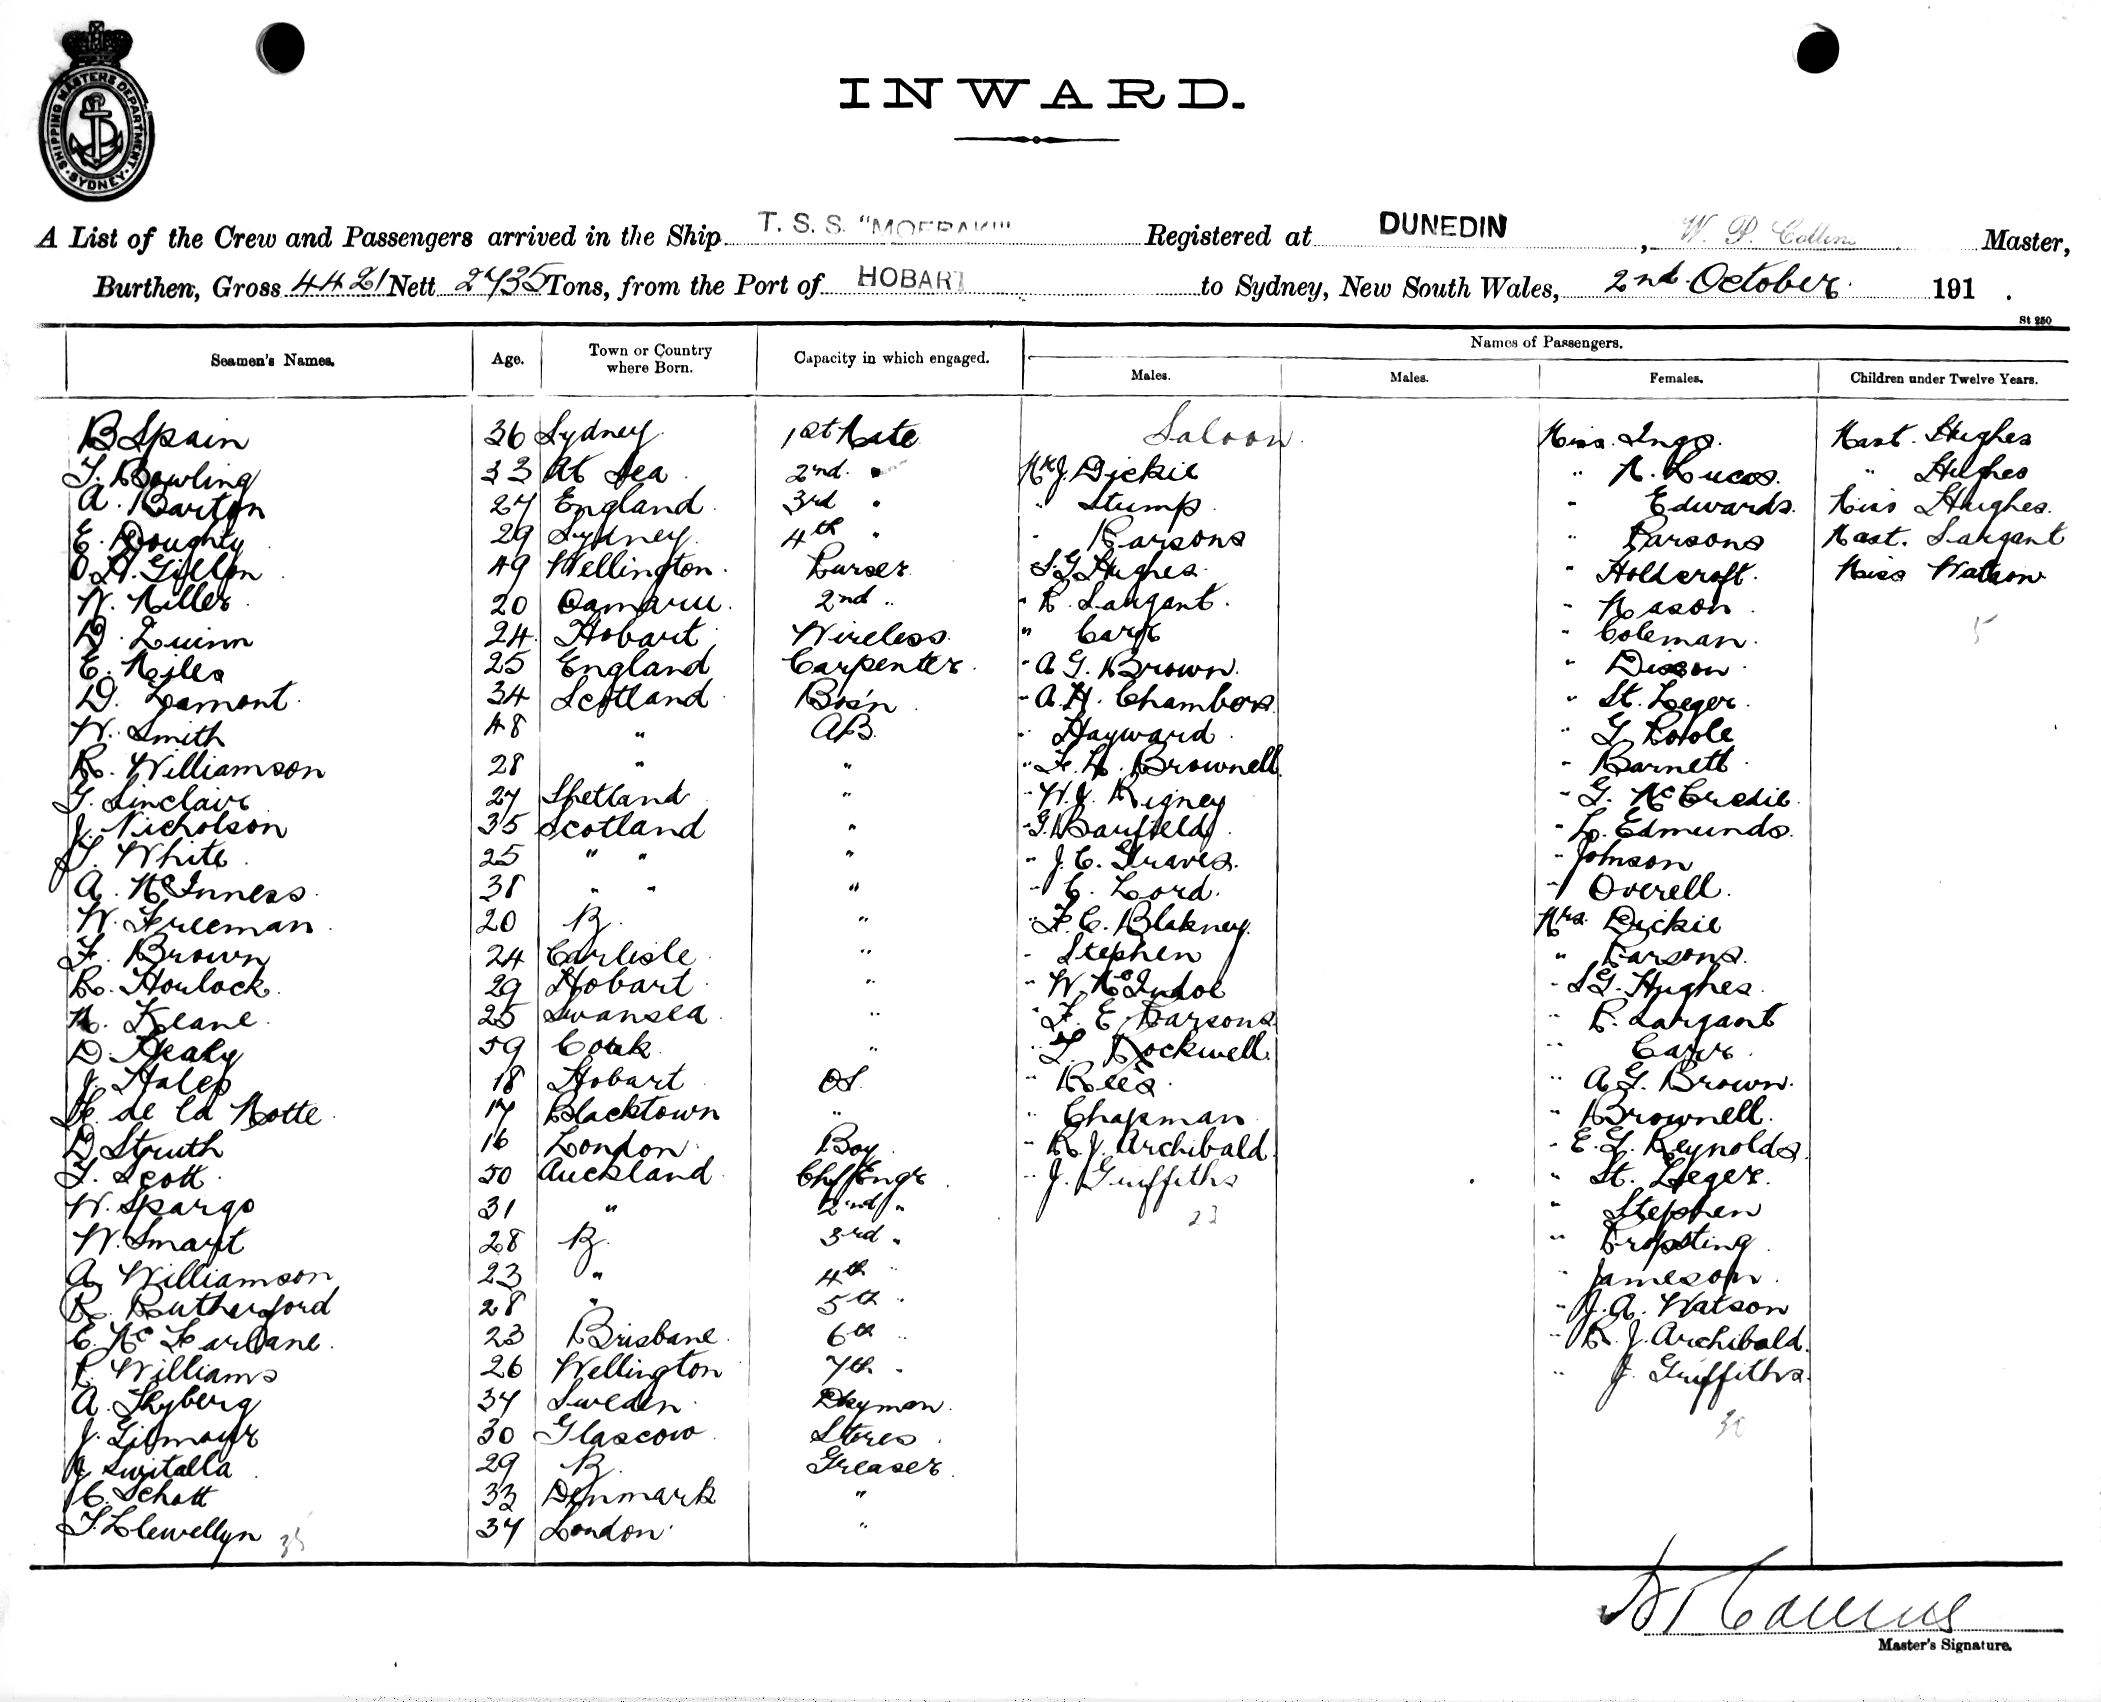 SHIPPING MASTERS DEPARTMENT
SYDNEY
INWARD.
A List of the Crew and Passengers arrived in the Ship T. S. S. "MOERAKI" Registered at DUNEDIN, W. P. Collins Master,
Burthen, Gross 4421 Nett 2735 Tons, from the Port of HOBART to Sydney, New South Wales, 2nd October 191 .
St 250
Seamen's Names. Age. Town or Country where Born. Capacity in which engaged. Names of Passengers.
Males. Males. Females. Children under Twelve Years.
B Spain 36 Sydney 1st Mate Saloon. Miss. Inga. Mast. Hughes
T. Bowling 33 At Sea 2nd. " Mr J. Dickie " M. Lucas. " Hughes
A. Barton 27 England 3rd " " Stump " Edwards. Miss Hughes.
E. Doughty 29 Sydney 4th " " Parsons " Parsons Mast. Sargant
49 Wellington. Purser S. G Hughes. " Holdcroft. Miss Watson
W. Miller 20 Oamaru. 2nd " " P. Sargant. " Mason
D. Quinn 24 Hobart Wireless. " Carr " Coleman. 5
E. Miles 25 England Carpenter. " A G. Brown. " Dixon
D. Lamont. 34 Scotland Bos'n " A. H. Chambers " St. Leger.
W. Smith 48 " AB. " Hayward " G. Poole
R. Williamson 28 " " " F. H. Brownell. " Barnett
G. Sinclair 27 Shetland " " W. J. Rigney " G. McCredie.
J. Nicholson 35 Scotland " " G. Barfield " L. Edmunds.
T. White 25 " " " " J. C. Graves. " Johnson
A. McInness 38 " " " " C. Lord. " Overell.
W. Freeman 20 B. " " F. C. Blakney. Mrs. Dickie
F. Brown 24 Carlisle " " Stephen " Parsons.
R. Horlock. 29 Hobart " " W. McIndoe " S G. Hughes
M. Keane. 25 Swansea " " F. E Parsons. " P. Sargant
D. Healy 59 Cork " " T. Rockwell. " Carr
J. Hales 18 Hobart OS. " Rees. " A G. Brown.
F. de la Motte 17 Blacktown " " Chapman " Brownell.
D Struth 16 London. Boy " R J. Archibald. " E. L. Reynolds.
T. Scott 50 Auckland Chf Engr " J. Griffiths " St. Leger.
W. Spargo 31 " 2nd " 23 " Stephen
W. Smart 28 B. 3rd " " Propsting
A Williamson 23 " 4th " " Jameson
R. Rutherford 28 " 5th " " J. A. Watson
C. McFarlane. 23 Brisbane 6th " " R J. Archibald.
Williams 26 Wellington 7th " " J Griffiths.
A. Thyberg 37 Sweden Dayman.
J. Gilmour 30 Glascow Stores 30
J Switalla 29 B. Greaser
C. Schott 33 Denmark "
T. Llewellyn 37 London. "
35
W P Collins
Master's Signature.